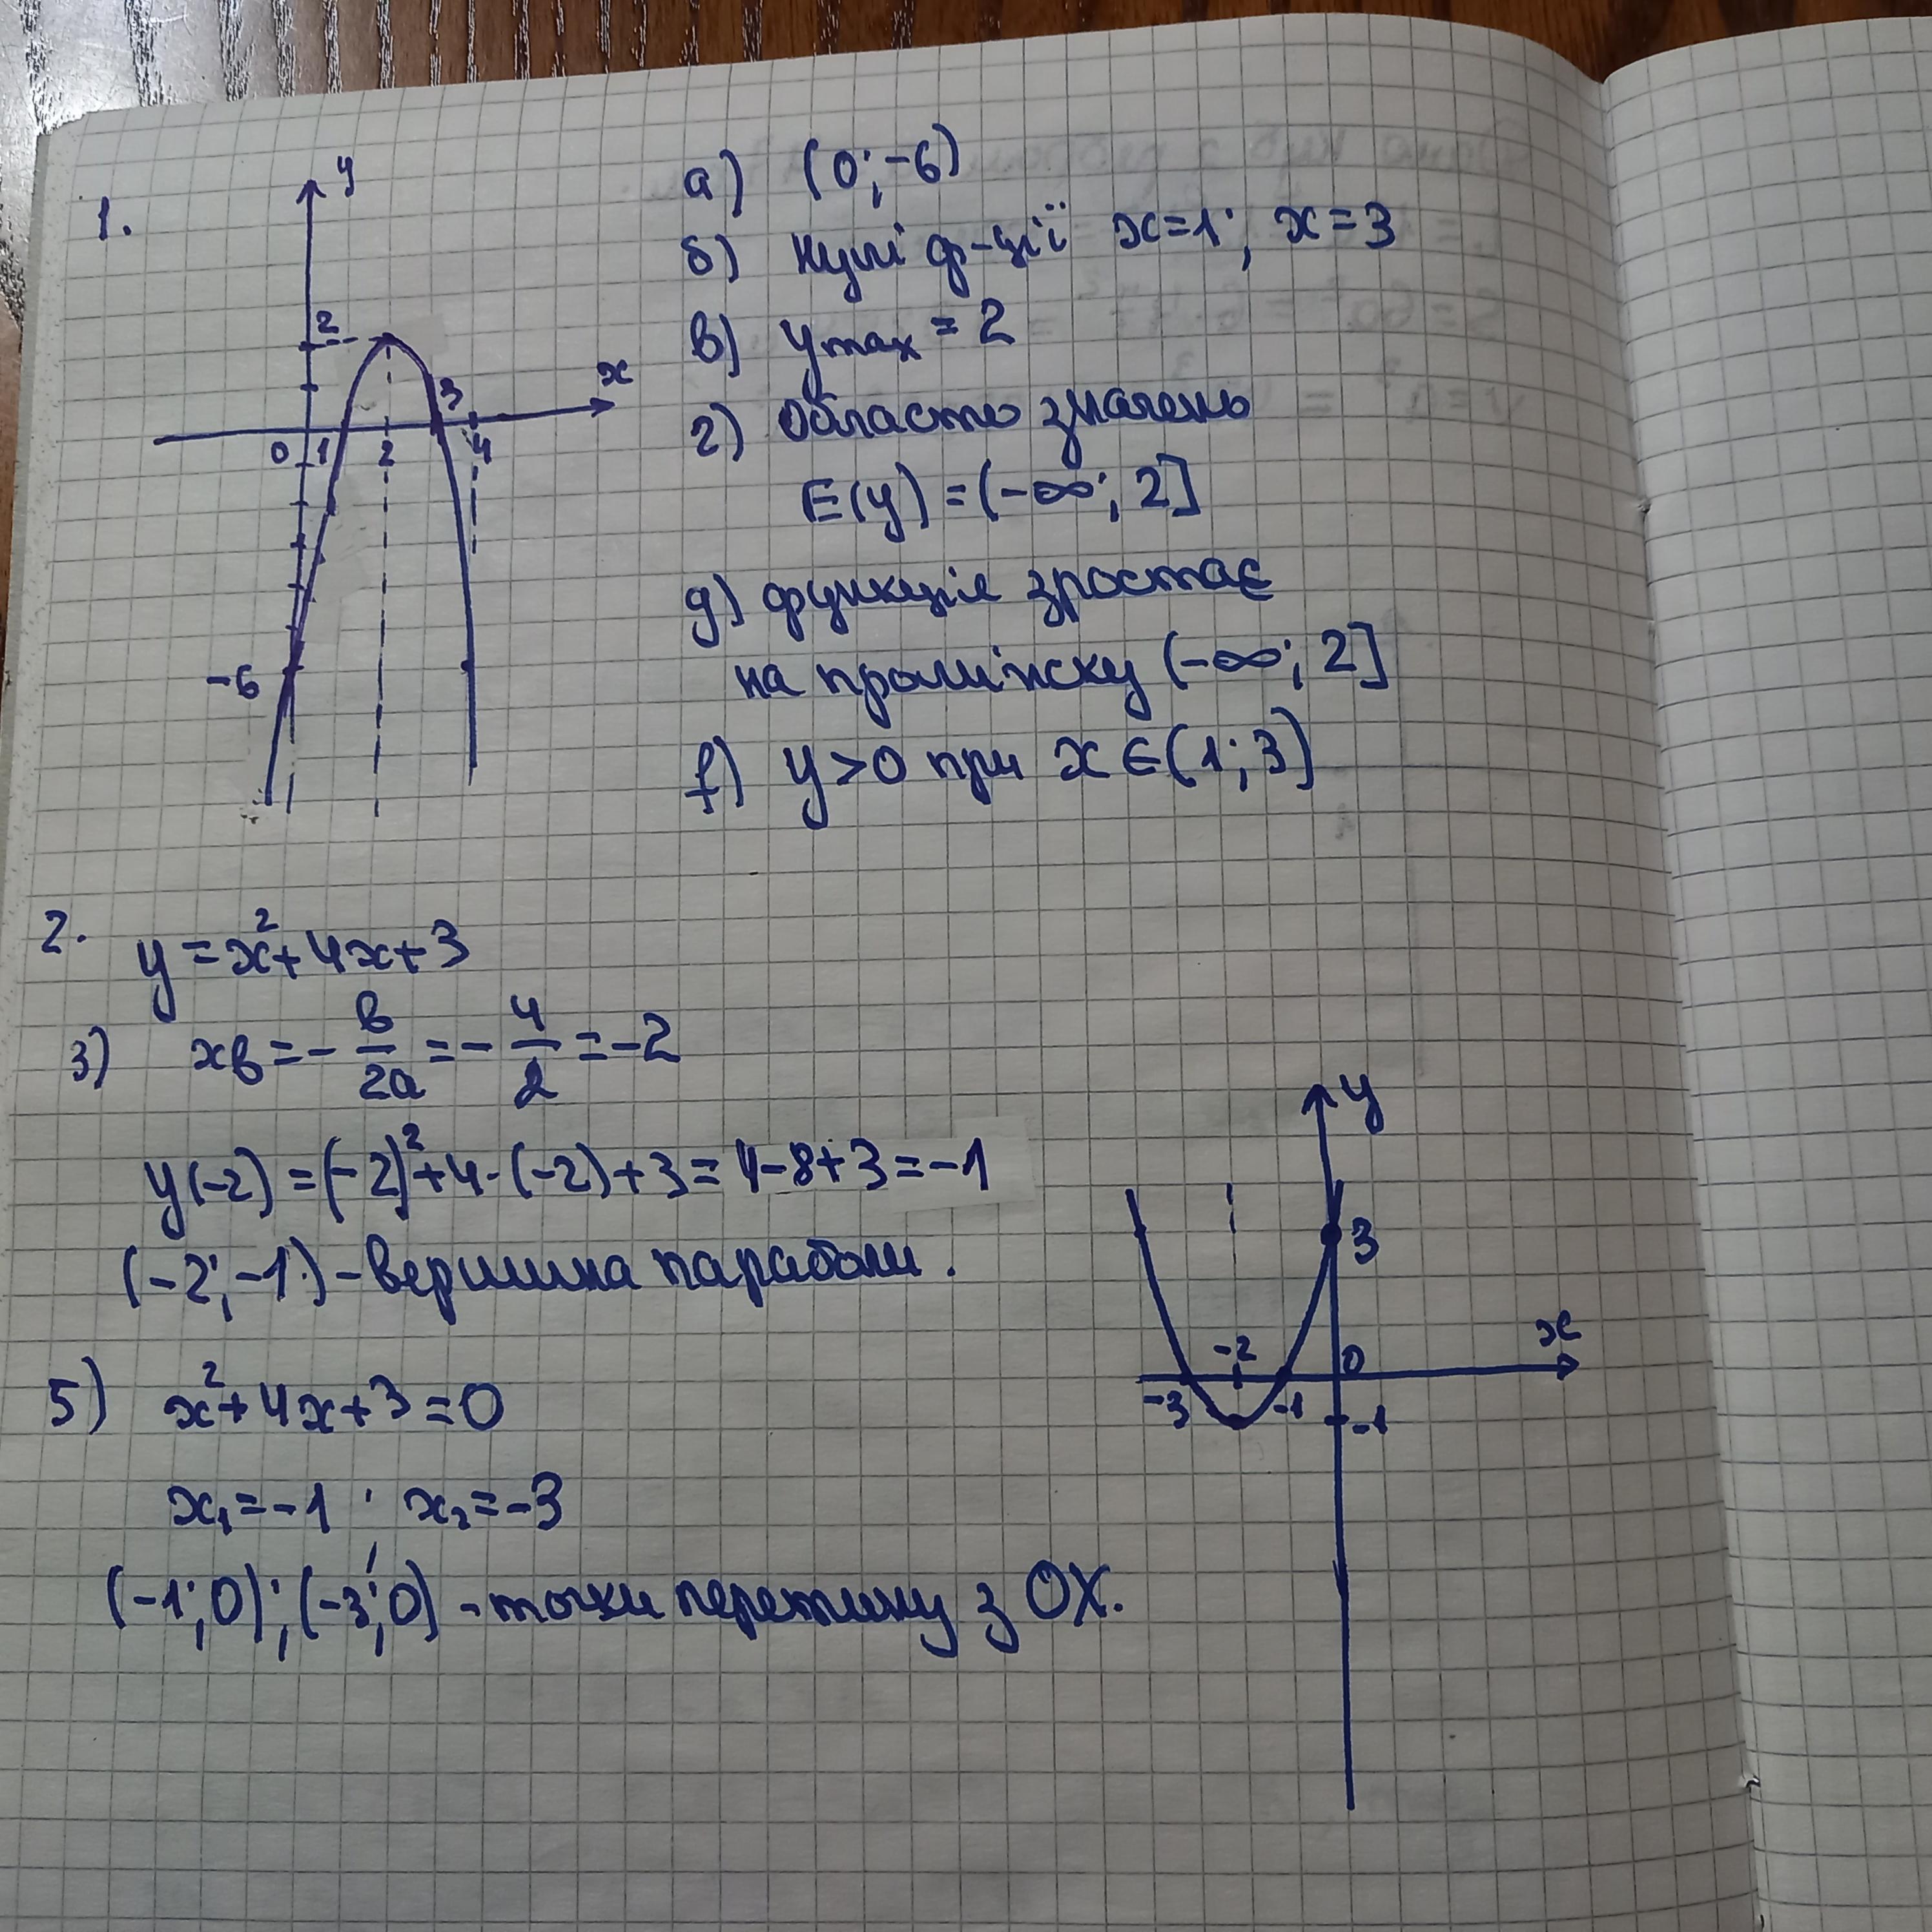 1.
y
2
x
3
0 1 2 4
-6
а) (0; -6)
б) нулі ф-ції x=1; x=3
в) y max = 2
г) Область значень
E(y) = (-∞; 2]
д) функція зростає
на проміжку (-∞; 2]
f) y>0 при x∈(1; 3)
2. y = x²+4x+3
3) xв = - в/2a = - 4/2 = -2
y(-2) = (-2)²+4·(-2)+3 = 4-8+3 = -1
(-2; -1) - вершина параболи.
5) x²+4x+3=0
x₁=-1; x₂=-3
(-1; 0); (-3; 0) - точки перетину з OX.
y
3
x
-2 0
-3 -1 -1